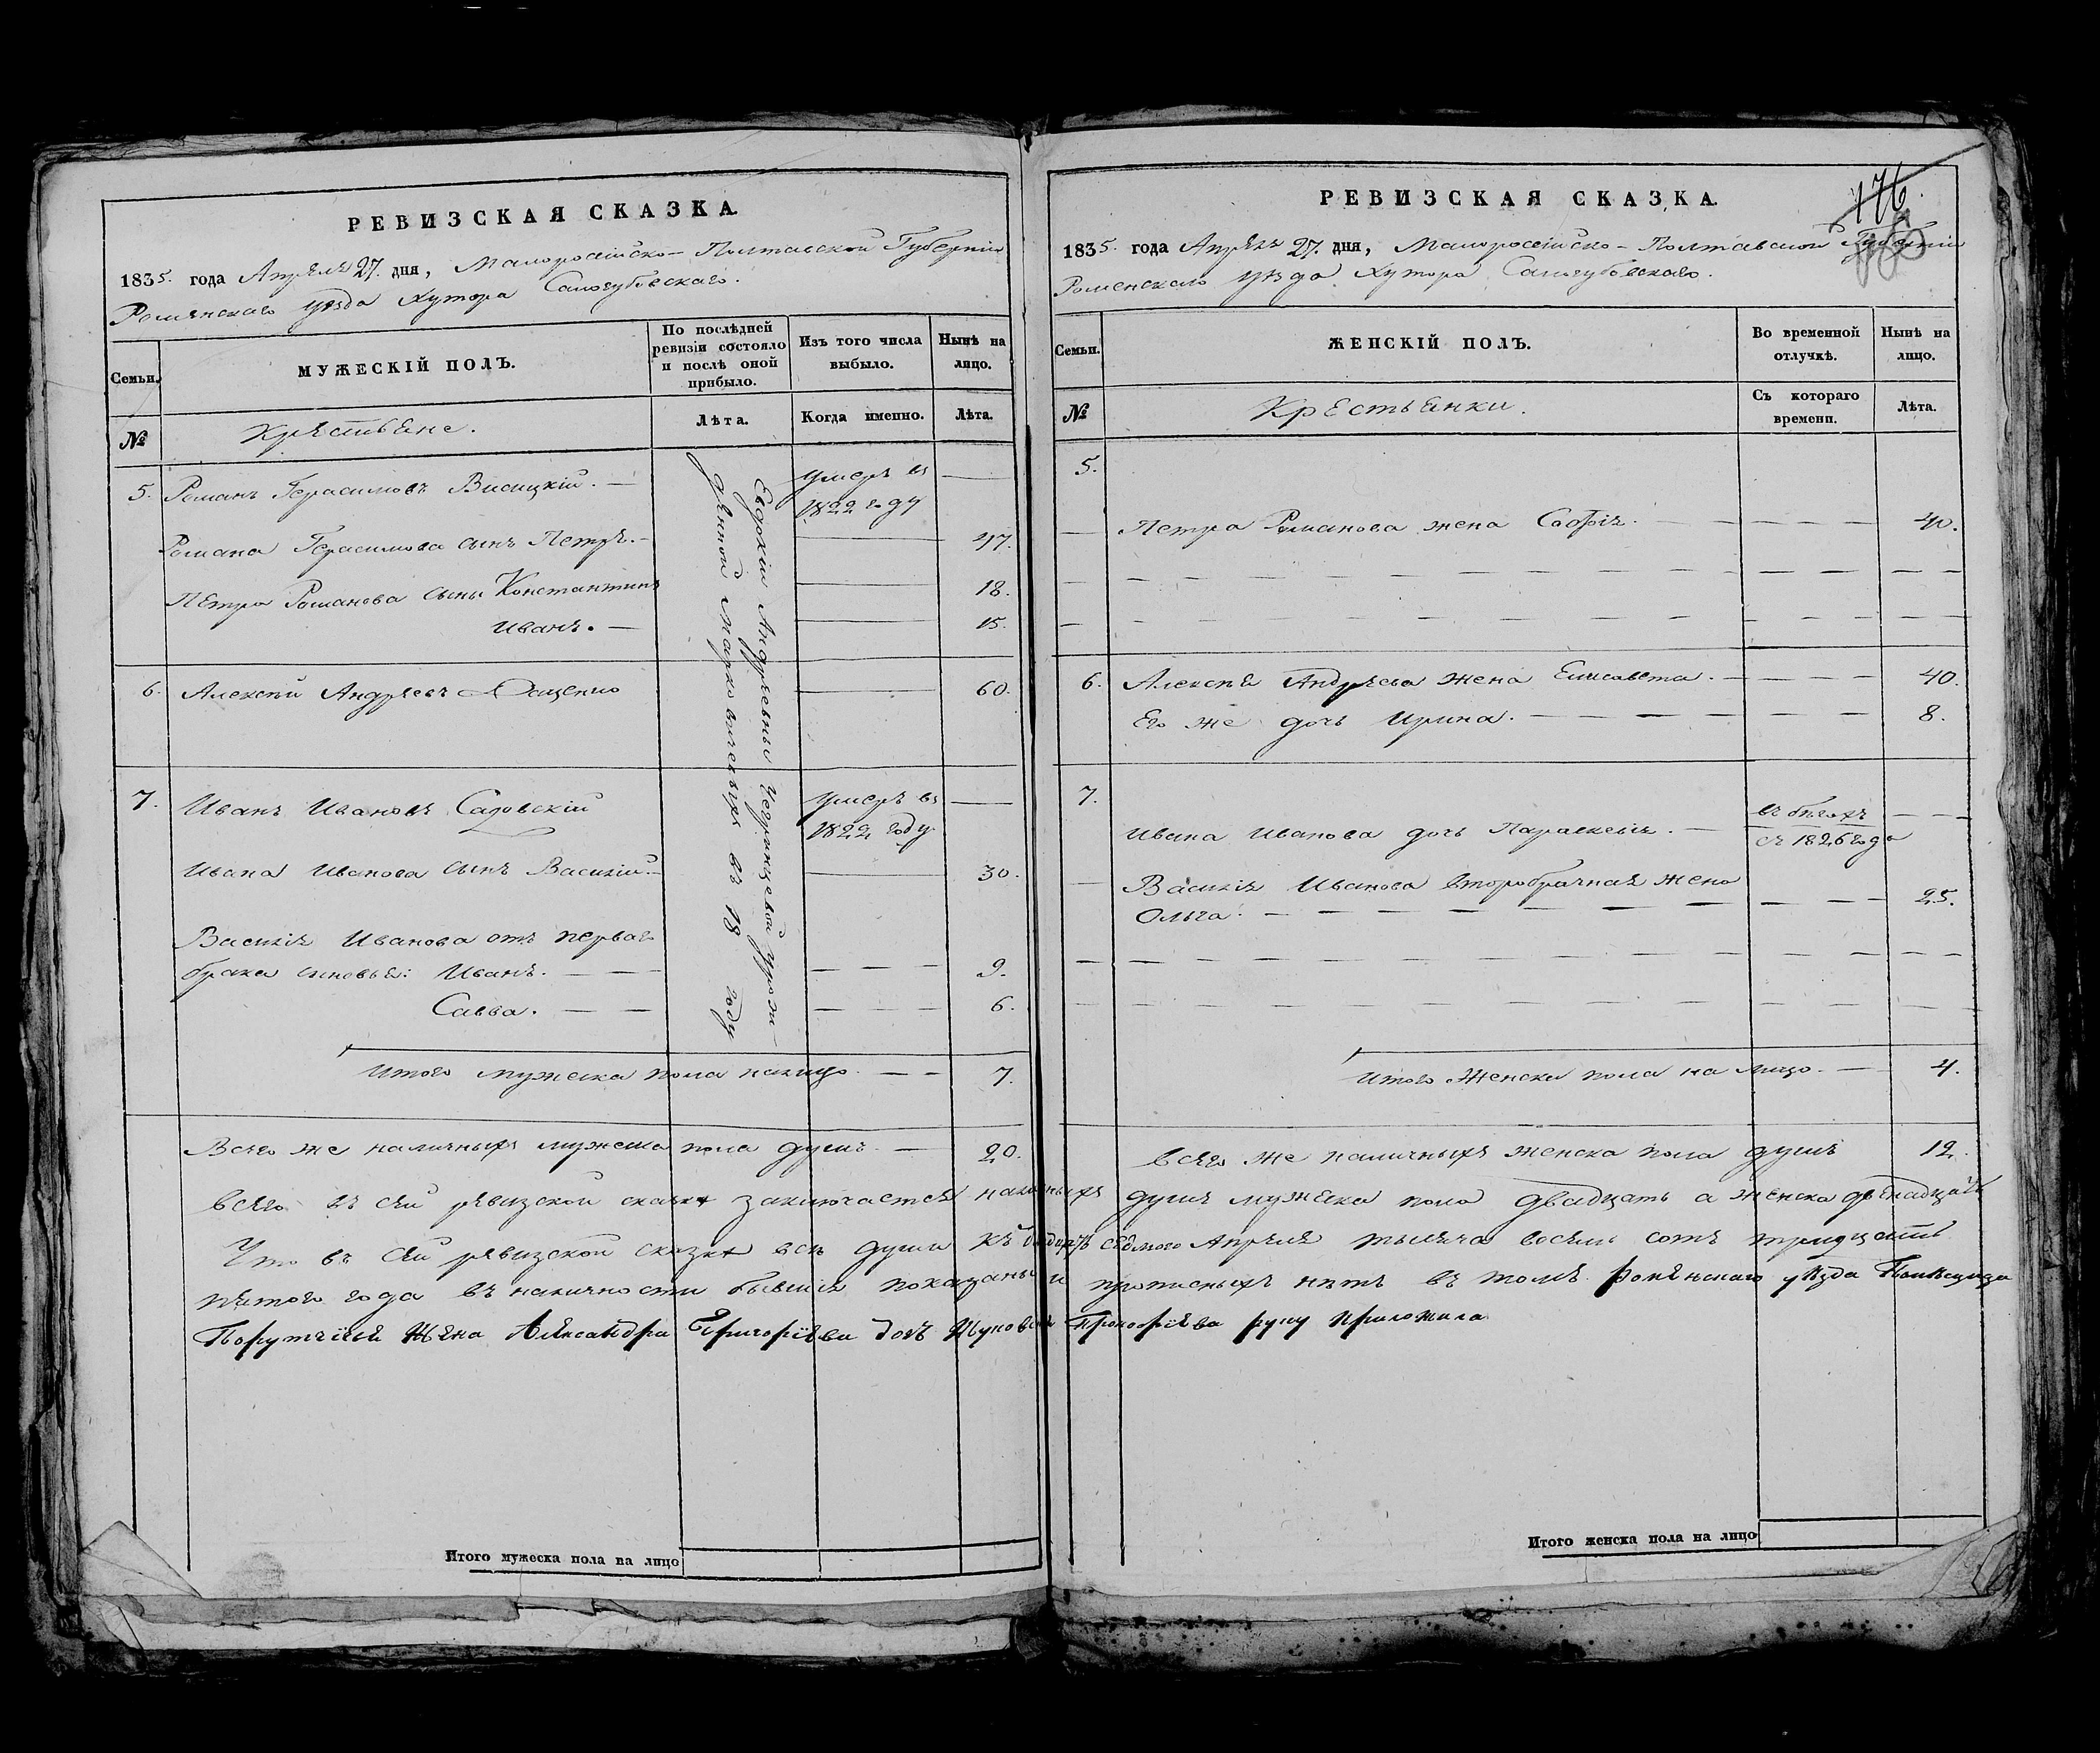 РЕВИЗСКАЯ СКАЗКА.
1835. года Апреля 27. дня, Малоросійско-Полтавской Губерніи
Роменскаго уѣзда Хутора Самогубовскаго.
Семьи.
МУЖЕСКІЙ ПОЛЪ.
По послѣдней ревизіи состояло и послѣ оной прибыло.
Изъ того числа выбыло.
Нынѣ на лицо.
№
Крестьяне.
Лѣта.
Когда именно.
Лѣта.
5. Романъ Герасимовъ Висицкій. — умеръ въ —
1822 году
Романа Герасимова сынъ Петръ. — 47.
Петра Романова сыны Константинъ 18.
Иванъ. — 15.
6. Алексѣй Андреевъ 60.
7. Иванъ Ивановъ Садовскій умеръ въ —
1822 году
Ивана Иванова сынъ Василій. — 30.
Василія Иванова отъ перваго
брака сыновья: Иванъ. — 9.
Савва. — 6.
Евдокіи Андреевны урож-
денной въ 18 году
Итого мужеска пола налицо. — 7.
Всего же наличныхъ мужеска пола душъ. — 20.
РЕВИЗСКАЯ СКАЗКА.
176.
1835. года Апрѣля 27. дня, Малоросійско-Полтавской Губерніи
Роменскаго уѣзда Хутора Самогубовскаго.
Семьи.
ЖЕНСКІЙ ПОЛЪ.
Во временной отлучкѣ.
Нынѣ на лицо.
№
Крестьянки.
Съ котораго времени.
Лѣта.
5.
Петра Романова жена Софія. — 40.
6. Алексѣя Андреева жена Елисавета. — 40.
Его же дочь Ирина. — 8.
7.
Ивана Иванова дочь Параскевія. — въ бѣгахъ
съ 1826 года
Василія Иванова второбрачная жена
Ольга. — 25.
Итого женска пола на лицо. — 4.
Всего же наличныхъ женска пола душъ 12.
Всего въ сей ревизской сказке заключается наличныхъ душъ мужеска пола двадцать а женска двенадцать
Что въ сей ревизской сказке все души къ седмого Апреля тысяча восемь сотъ тридцать
пятого года въ наличности бывшія показаны и прописныхъ нетъ въ томъ Роменского уезда
Жена Александра Григоріева дочъ Прокофіева руку приложила
Итого мужеска пола на лицо
Итого женска пола на лицо